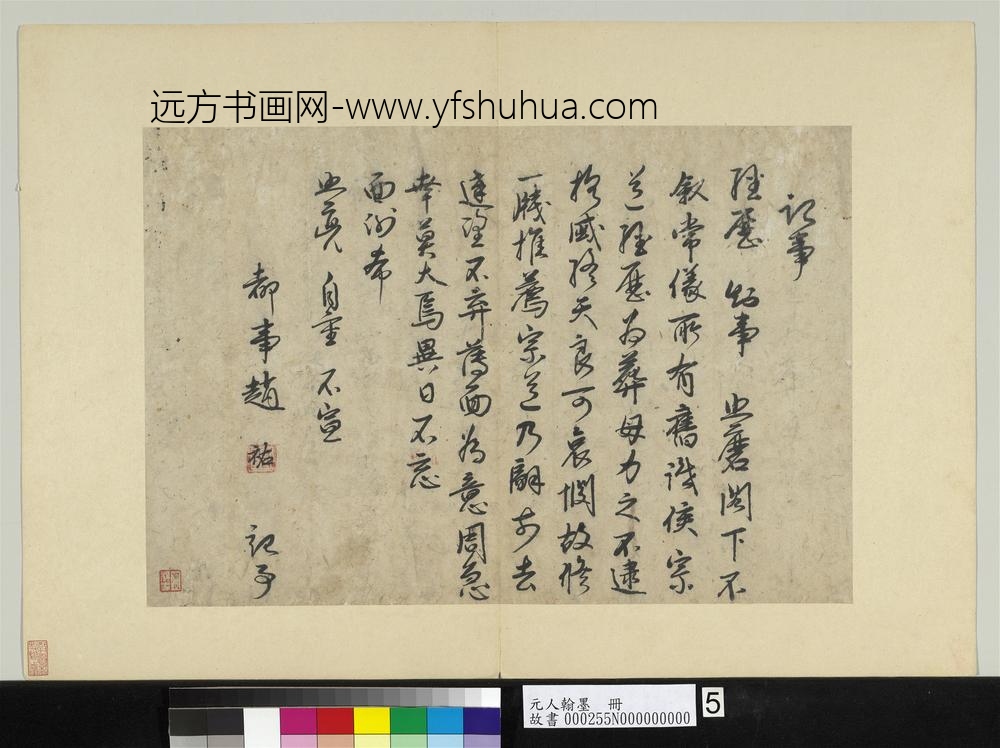 远方书画网-www.yfshuhua.com
記事
經歷 知事 照磨閣下不
叙常儀所有舊識侯宗
道經歷為葬母力之不逮
抱感終天良可哀憫故修
一牋推薦宗道乃辭前去
達望不弃舊面為意周急
幸莫大焉異日不忘
面謝希
照亮 自重 不宣
都事趙 祐 記事
元人翰墨 冊
故書 000255N000000000
5